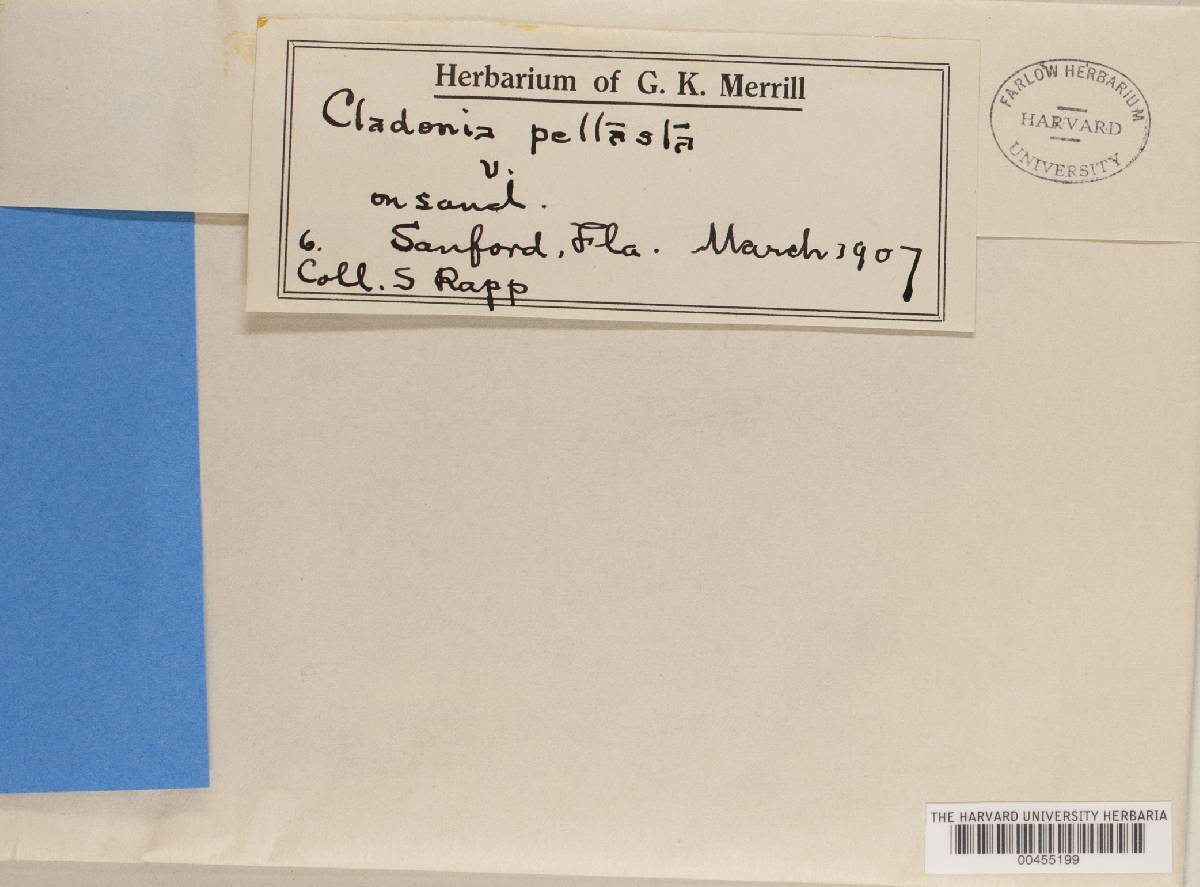 Herbarium of G. K. Merrill
Cladonia pellasta
v.
on sand.
6. Sanford, Fla. March 1907
Coll. S Rapp
FARLOW HERBARIUM
HARVARD
UNIVERSITY
THE HARVARD UNIVERSITY HERBARIA
00455199